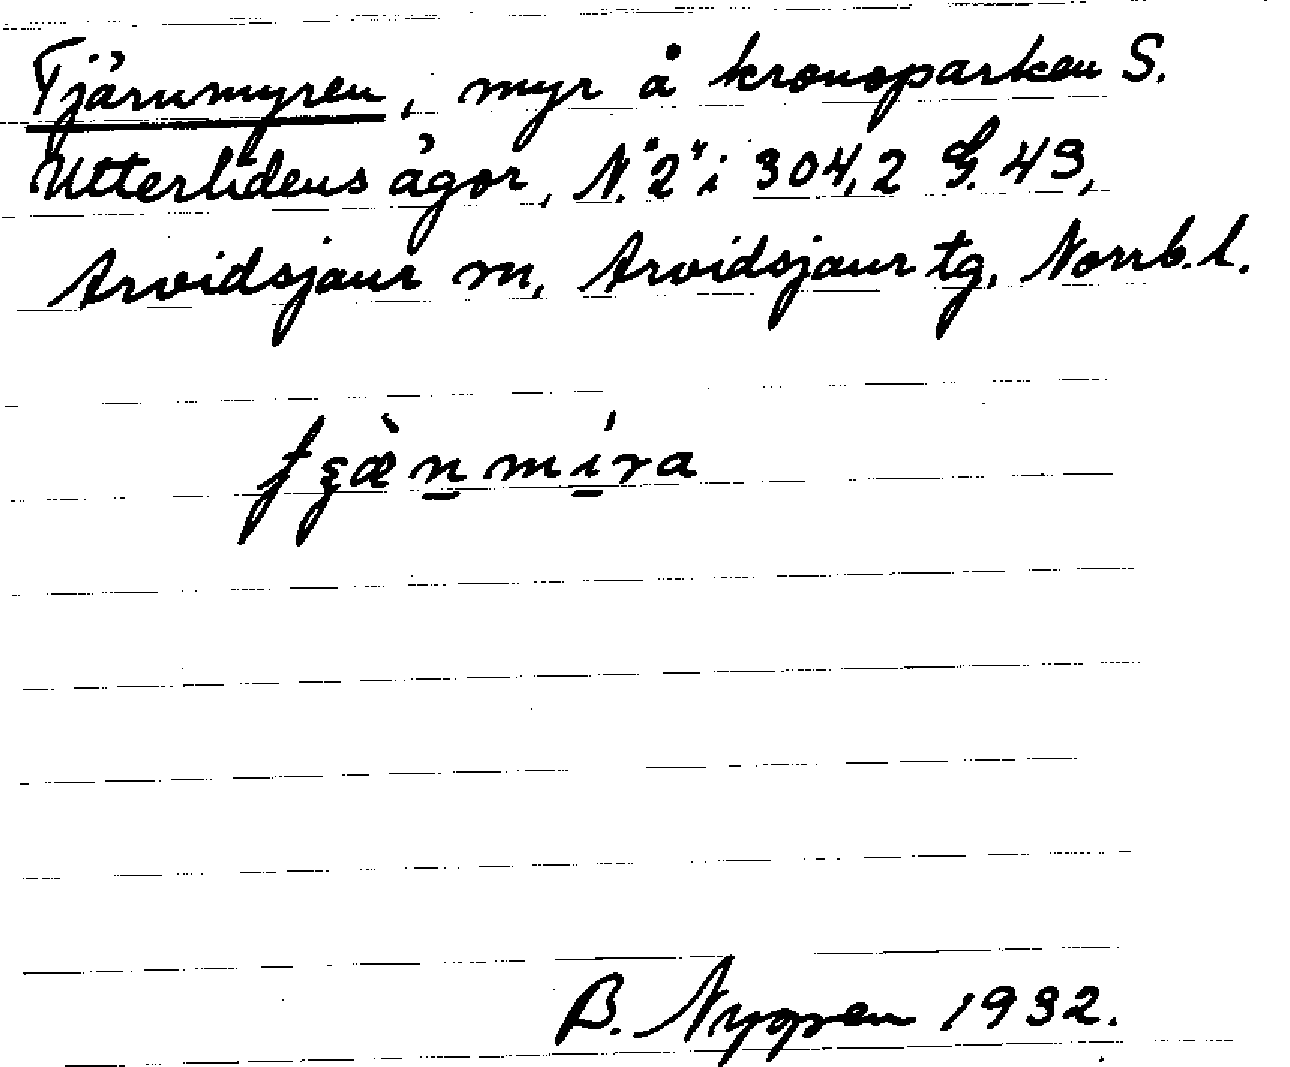 Tjärnmyren, myr å kronoparken S.
Utterlidens ägor, N."2" i 304,2 G. 43,
Arvidsjaur sn, Arvidsjaur tg, Norrb. l.
B. Nygren 1932.